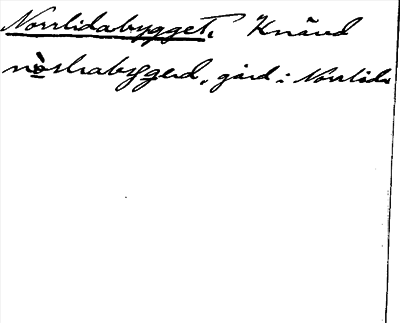 Norrlidabygget, Knäred
nòstrabygged, gård i Norrlida